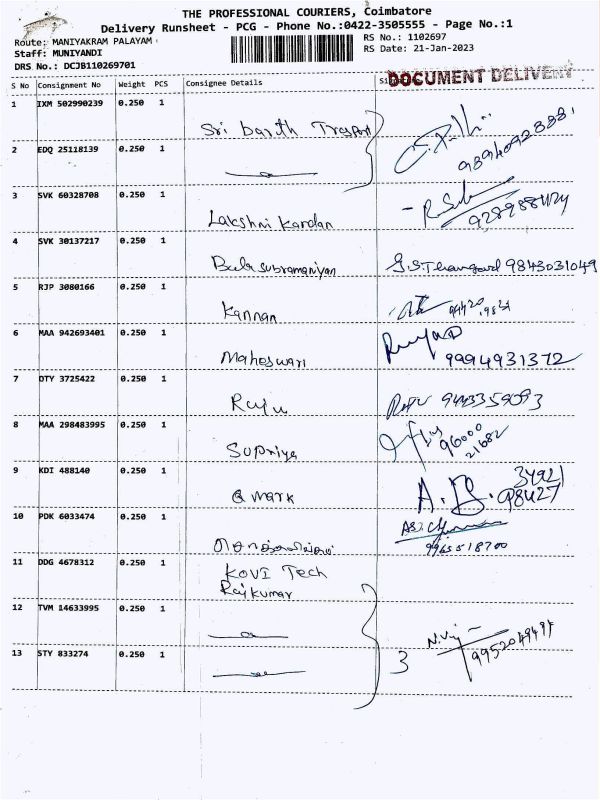 THE PROFESSIONAL COURIERS, Coimbatore
Delivery Runsheet - PCG - Phone No.:0422-3505555 - Page No.:1
Route: MANIYAKRAM PALAYAM
Staff: MUNIYANDI
DRS No.: DCJB110269701
RS No.: 1102697
RS Date: 21-Jan-2023
DOCUMENT DELIVERY
S No Consignment No Weight PCS Consignee Details
1 IXM 502990239 0.250 1
Sri 9894092888
2 EDQ 25118139 0.250 1
3 SVK 60328708 0.250 1
Lakshmi Kandan
4 SVK 30137217 0.250 1
Bala subramaniyan 9843031049
5 RJP 3080166 0.250 1
Kannan
6 MAA 942693401 0.250 1
Maheswari 9994931372
7 OTY 3725422 0.250 1
Raju Raju 9443359093
8 MAA 298483995 0.250 1
Supriya 96000
21682
9 KDI 488140 0.250 1
Q mark 34921
98427
10 PDK 6033474 0.250 1
9965518700
11 DDG 4678312 0.250 1
KOVI Tech
Rajkumar
12 TVM 14633995 0.250 1
13 STY 833274 0.250 1
3